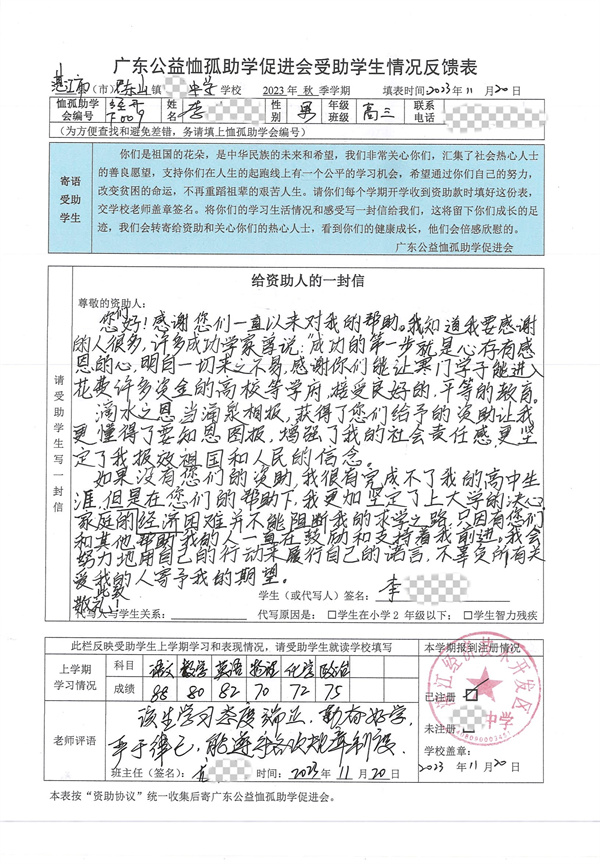 广东公益恤孤助学促进会受助学生情况反馈表
湛江市(市) 东山镇 中学 学校 2023年 秋 季学期 填表时间2023年11月20日
恤孤助学会编号 经开T009 姓名 李 性别 男 年级班级 高三 联系电话
(为方便查找和避免差错,务请填上恤孤助学会编号)
寄语受助学生
你们是祖国的花朵,是中华民族的未来和希望,我们非常关心你们,汇集了社会热心人士
的善良愿望,支持你们在人生的起跑线上有一个公平的学习机会,希望通过你们自己的努力,
改变贫困的命运,不再重蹈祖辈的艰苦人生。请你们每个学期开学收到资助款时填好这份表,
交学校老师盖章签名。将你们的学习生活情况和感受写一封信给我们,这将留下你们成长的足
迹,我们会转寄给资助和关心你们的热心人士,看到你们的健康成长,他们会倍感欣慰的。
广东公益恤孤助学促进会
请受助学生写一封信
给资助人的一封信
尊敬的资助人:
您们好!感谢您们一直以来对我的帮助。我知道我要感谢
的人很多,许多成功学家曾说:“成功的第一步就是心存有感
恩的心,明白一切来之不易,感谢你们能让寒门学子能进入
花费许多资金的高校等学府,接受良好的,平等的教育。
滴水之恩当涌泉相报,获得了您们给予的资助让我
更懂得了要知恩图报,增强了我的社会责任感,更坚
定了我报效祖国和人民的信念。
如果没有您们的资助,我很有完成不了我的高中生
涯,但是在您们的帮助下,我更加坚定了上大学的决心,
家庭的经济困难并不能阻断我的求学之路,只因有您们
和其他帮助我的人一直在鼓励和支持着我前进。我会
努力地用自己的行动来履行自己的诺言,不辜负所有关
爱我的人寄予我的期望。
此致
敬礼!
学生(或代写人)签名: 李
代写人与学生关系: 代写原因是:□学生在小学2年级以下; □学生智力残疾
此栏反映受助学生上学期学习和表现情况,请受助学生就读学校填写
本学期报到注册情况
上学期学习情况
科目 语文 数学 英语 物理 化学 政治
成绩 88 80 82 70 72 75
已注册 ☑
未注册
学校盖章:
2023年11月20日
湛江经济技术开发区
中学
老师评语
该生学习态度端正,勤奋好学,
严于律己,能遵守各次规章制度.
班主任(签名): 时间:2023年11月20日
本表按“资助协议”统一收集后寄广东公益恤孤助学促进会。